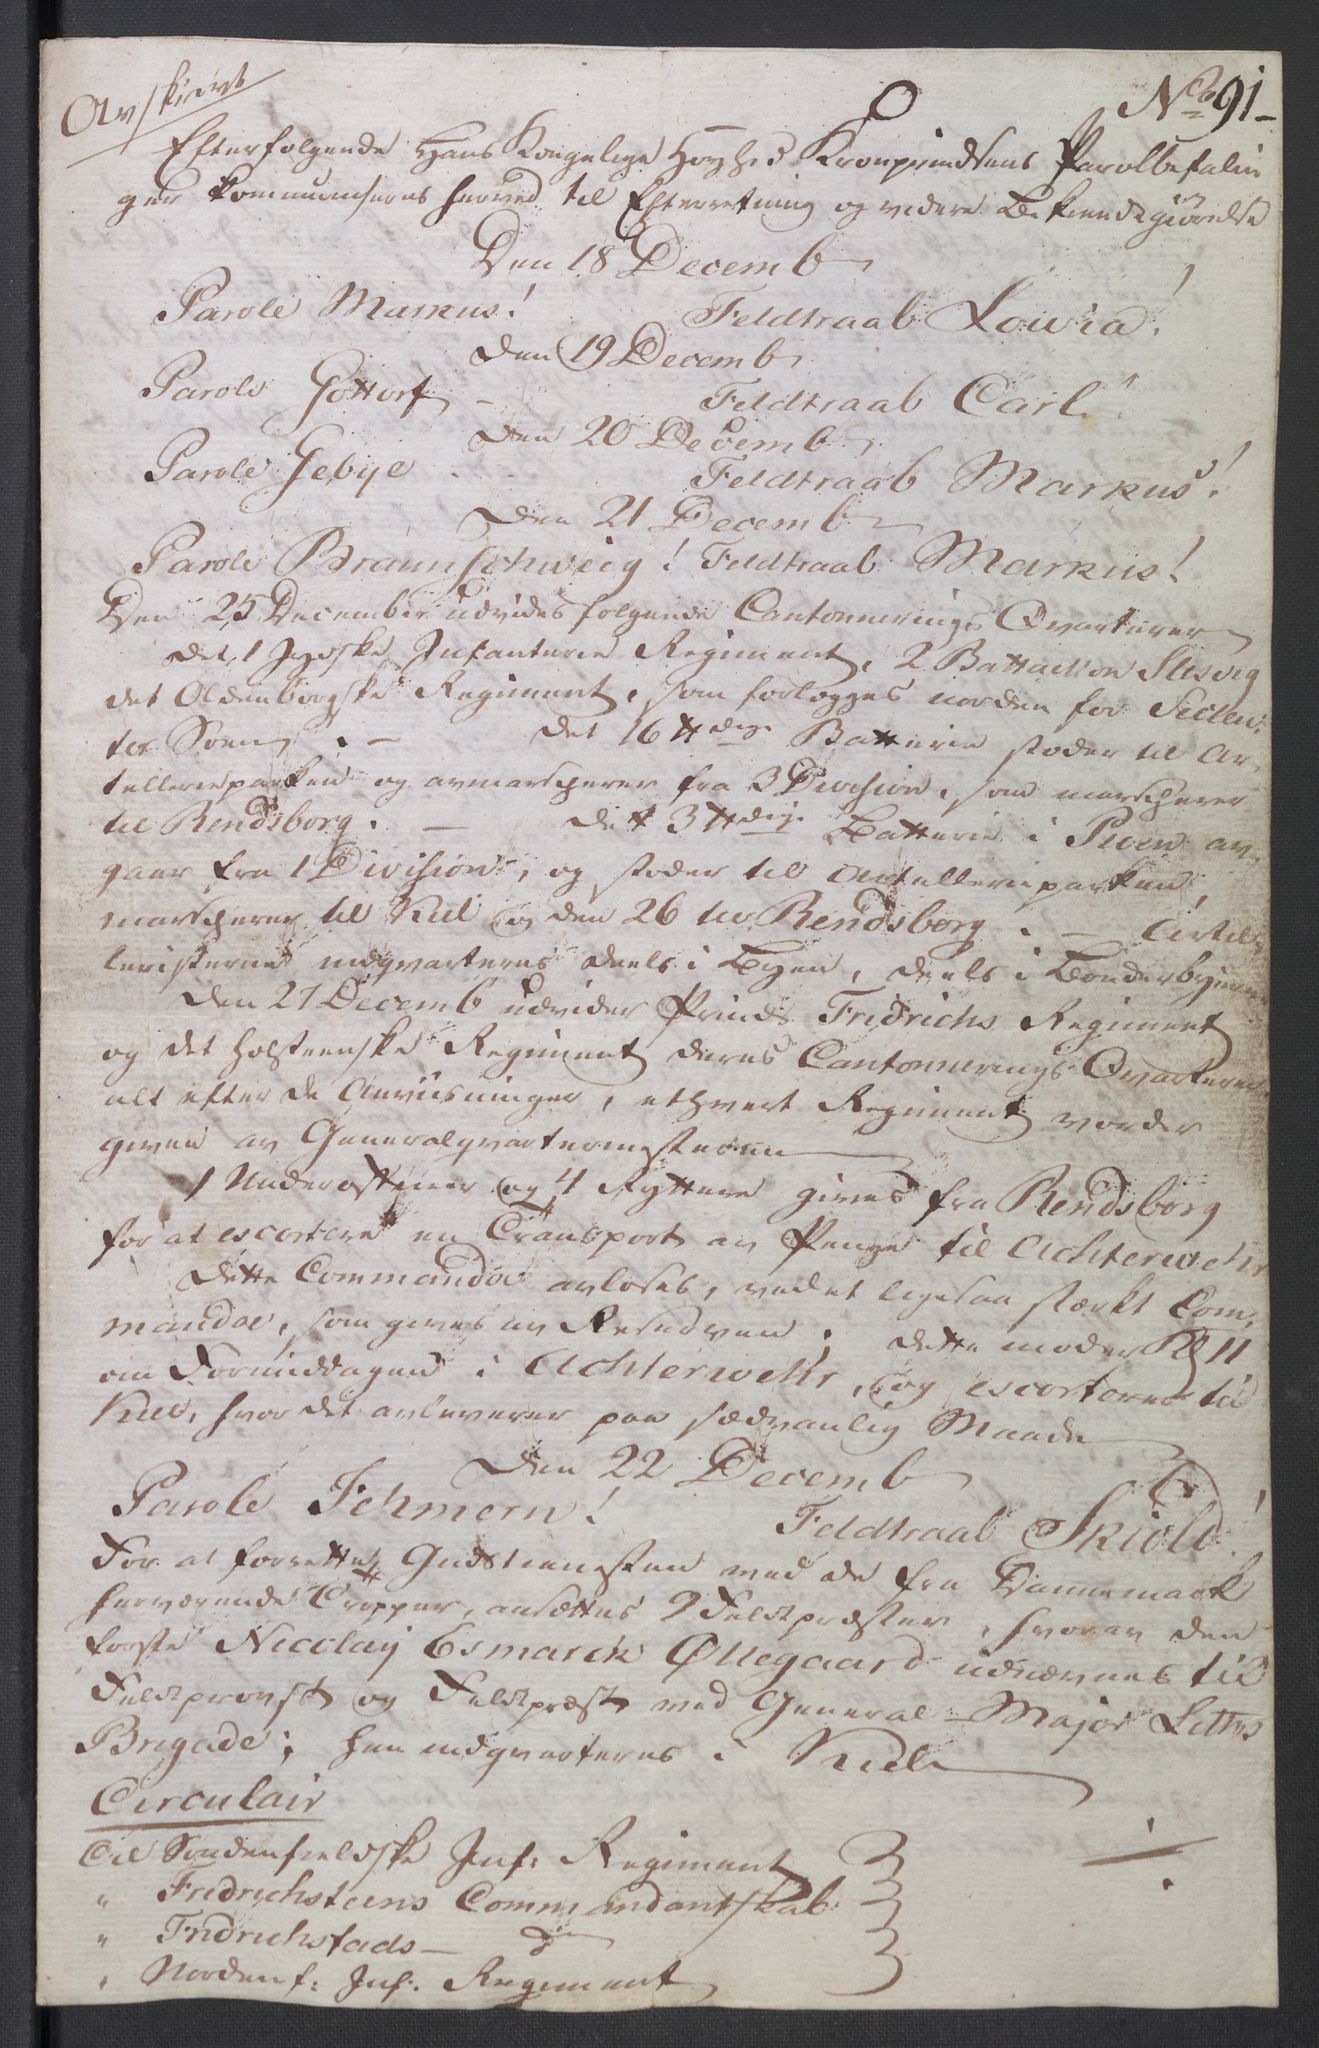 Avskrivt
No 91-
Efterfølgende Hans Kongelige Høyheds Kronprindsens Parolbefalin
ger kommuniseres herved til Efterretning og videre Bekiendtgiørelse
Den 18 Decemb
Parole Markus! Feldtraab Lovisa!
Den 19 Decemb
Parole Gottorf - Feldtraab Carl!
Den 20 Decemb
Parole Gebye - Feldtraab Markus!
Den 21 Decemb
Parole Braunschweig! Feldtraab Markus!
Den 25 December udvides følgende Cantonnerings Qvarterer
det 1 Jydske Infanterie Regiment, 2 Battaillon Slesvig
det Oldenborgske Regiment, som forlegges norden for Selen-
ter Søen. - det 16 ttdige Batterie støder til Ar-
tellerieparken og avmarscherer fra 3 Division, som marscherer
til Rendsborg. - det 3 ttdige Batterie i Preen av-
gaaer fra 1 Division, og støder til Artellerieparken
marscherer til Kiel og den 26 til Rendsborg. - Artil-
leristerne indqvarteres deels i Byen, deels i Bønderbyerne
Den 27 Decemb udvider Prinds Fridrichs Regiment
og det holsteenske Regiment deres Cantonnerings Qvarterer
alt efter de Anviisninger, ethvert Regiment vorder
given av Generalqvartermesteren
1 Underofficeer og 4 Ryttere gives fra Rendsborg
for at escortere en Transport av Penge til Achterwehr
Dette Commandoe avløses, ved et ligesaa stærkt Com-
mandoe, som gives av Reserven; dette møder Kl 11
om Formiddagen i Achterwehr, og escorterer til
Kiel, hvor det avleverer paa sædvanlig Maade
Den 22 Decemb
Parole Fehmern! Feldtraab Skiold!
For at forrette Gudstienesten ved de fra Dannemark
herværende Tropper, ansættes 2 Feldtpræster, hvorav den
første Nicolay Esmarck Øllegaard udnævnes til
Feldtprovst og Feldtpræst ved General-Major Lettos
Brigade; han indqvarteres i Kiel
Circulair
Til Søndenfieldske Inf: Regiment
" Fridrichsteens Commandantskab
" Fridrichstads - do
" Nordenf: Inf: Regiment